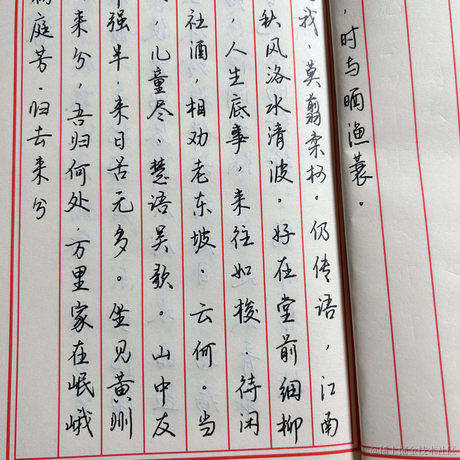 庭芳.归去来兮
来兮,吾归何处.万里家在岷峨
强半.来日苦无多。坐见黄州
,儿童尽.楚语吴歌。山中友
社酒,相劝老东坡.云何。当
,人生底事,来往如梭.待闲
秋风洛水清波。好在堂前细柳
我,莫剪柔柯.仍传语,江南
,时与晒渔蓑。
@稀土掘金技术社区